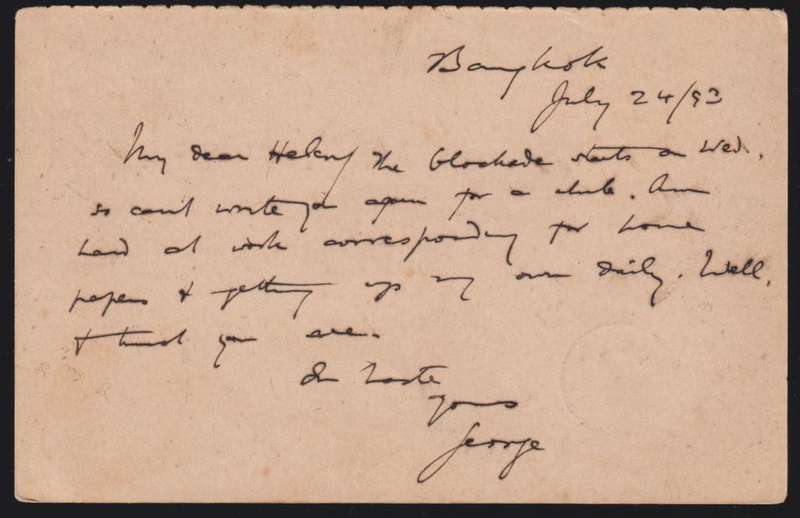 Bangkok
July 24/93
My dear Helen, The blockade starts on Wed.
so can't write you again for a while. Am
hard at work corresponding for home
papers & getting up my own daily. Well,
& trust you are.
In haste
yours
George